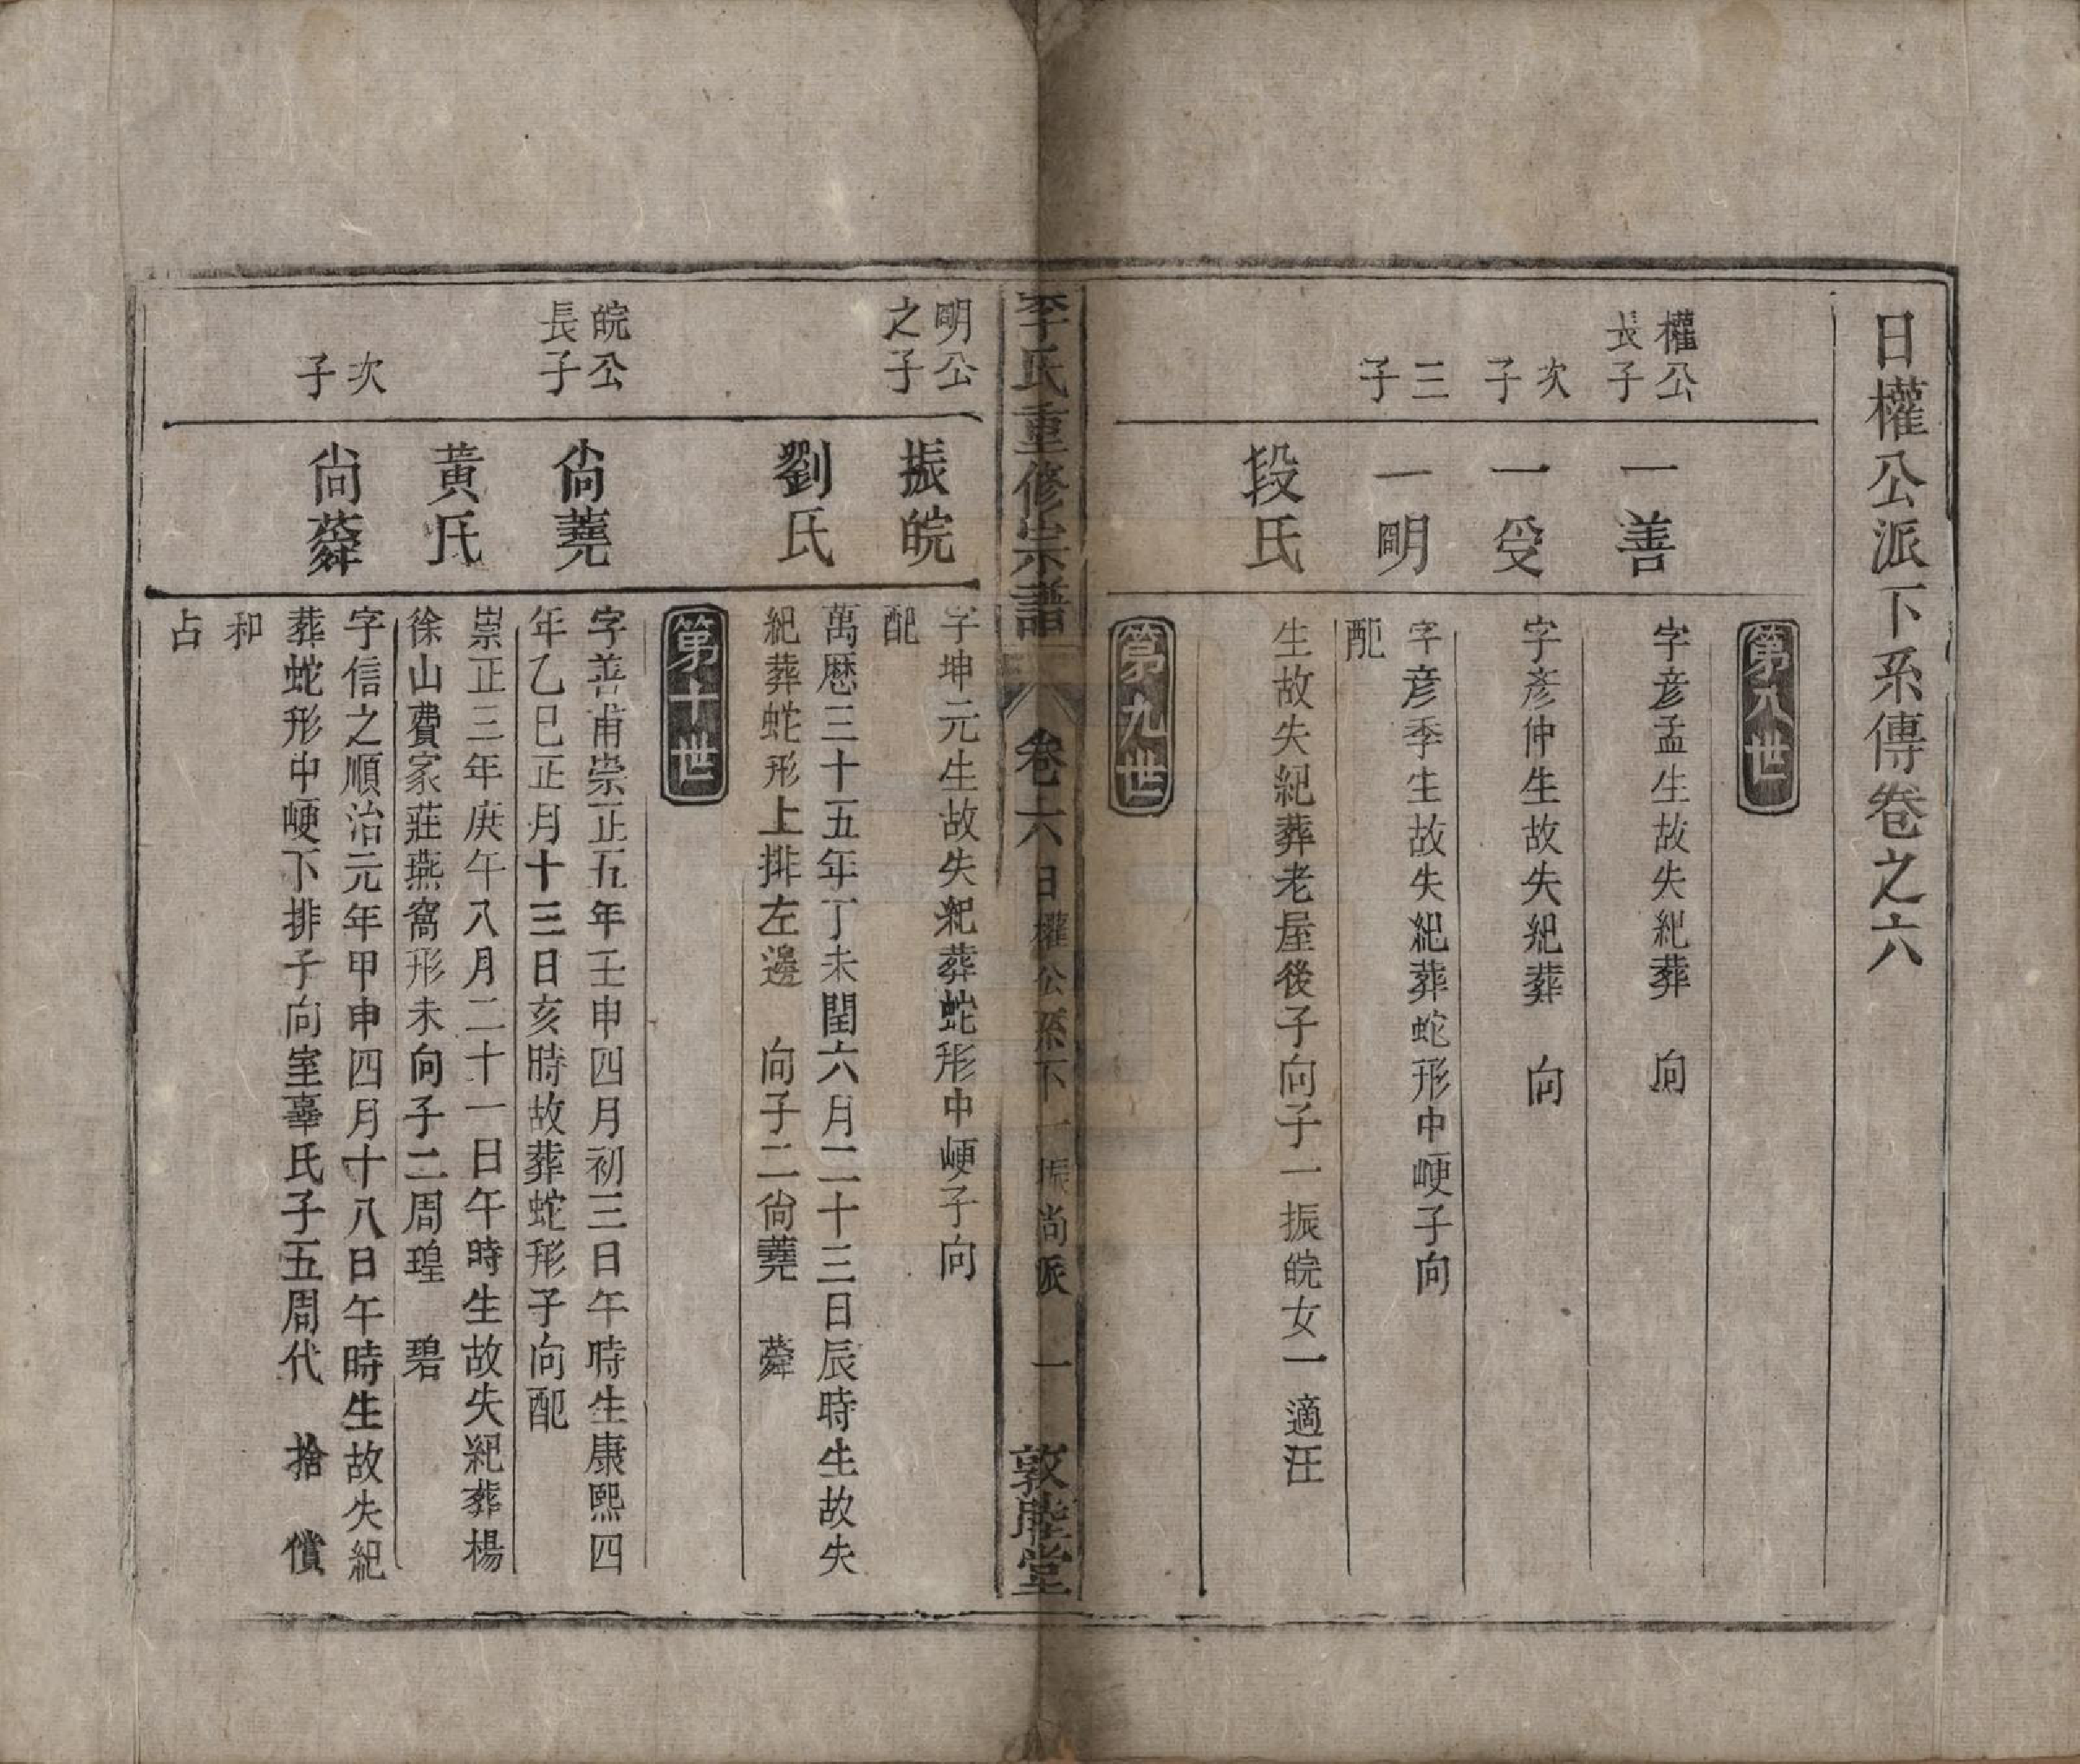 日權公派下系傳卷之六
第八世
權公
長子
一善
字彦孟生故失紀葬　向
次
子
一受
字彦仲生故失紀葬　向
三
子
一明
字彦季生故失紀葬蛇形中崾子向
配
段氏
生故失紀葬老屋後子向子一振皖女一適汪
第九世
李氏重修宗譜
卷六
日權公系下一振尚派
一
敦陸堂
明公
之子
振皖
字坤元生故失紀葬蛇形中崾子向
配
劉氏
萬厯三十五年丁未閏六月二十三日辰時生故失
紀葬蛇形上排左邊　向子二尚蕘　蕣
第十世
皖公
長子
尚蕘
字善甫崇正五年壬申四月初三日午時生康熙四
年乙巳正月十三日亥時故葬蛇形子向配
黃氏
崇正三年庚午八月二十一日午時生故失紀葬楊
徐山費家莊燕窩形未向子二周瑝　碧
次
子
尚蕣
字信之順治元年甲申四月十八日午時生故失紀
葬蛇形中崾下排子向室辜氏子五周代　拾　償
和
占